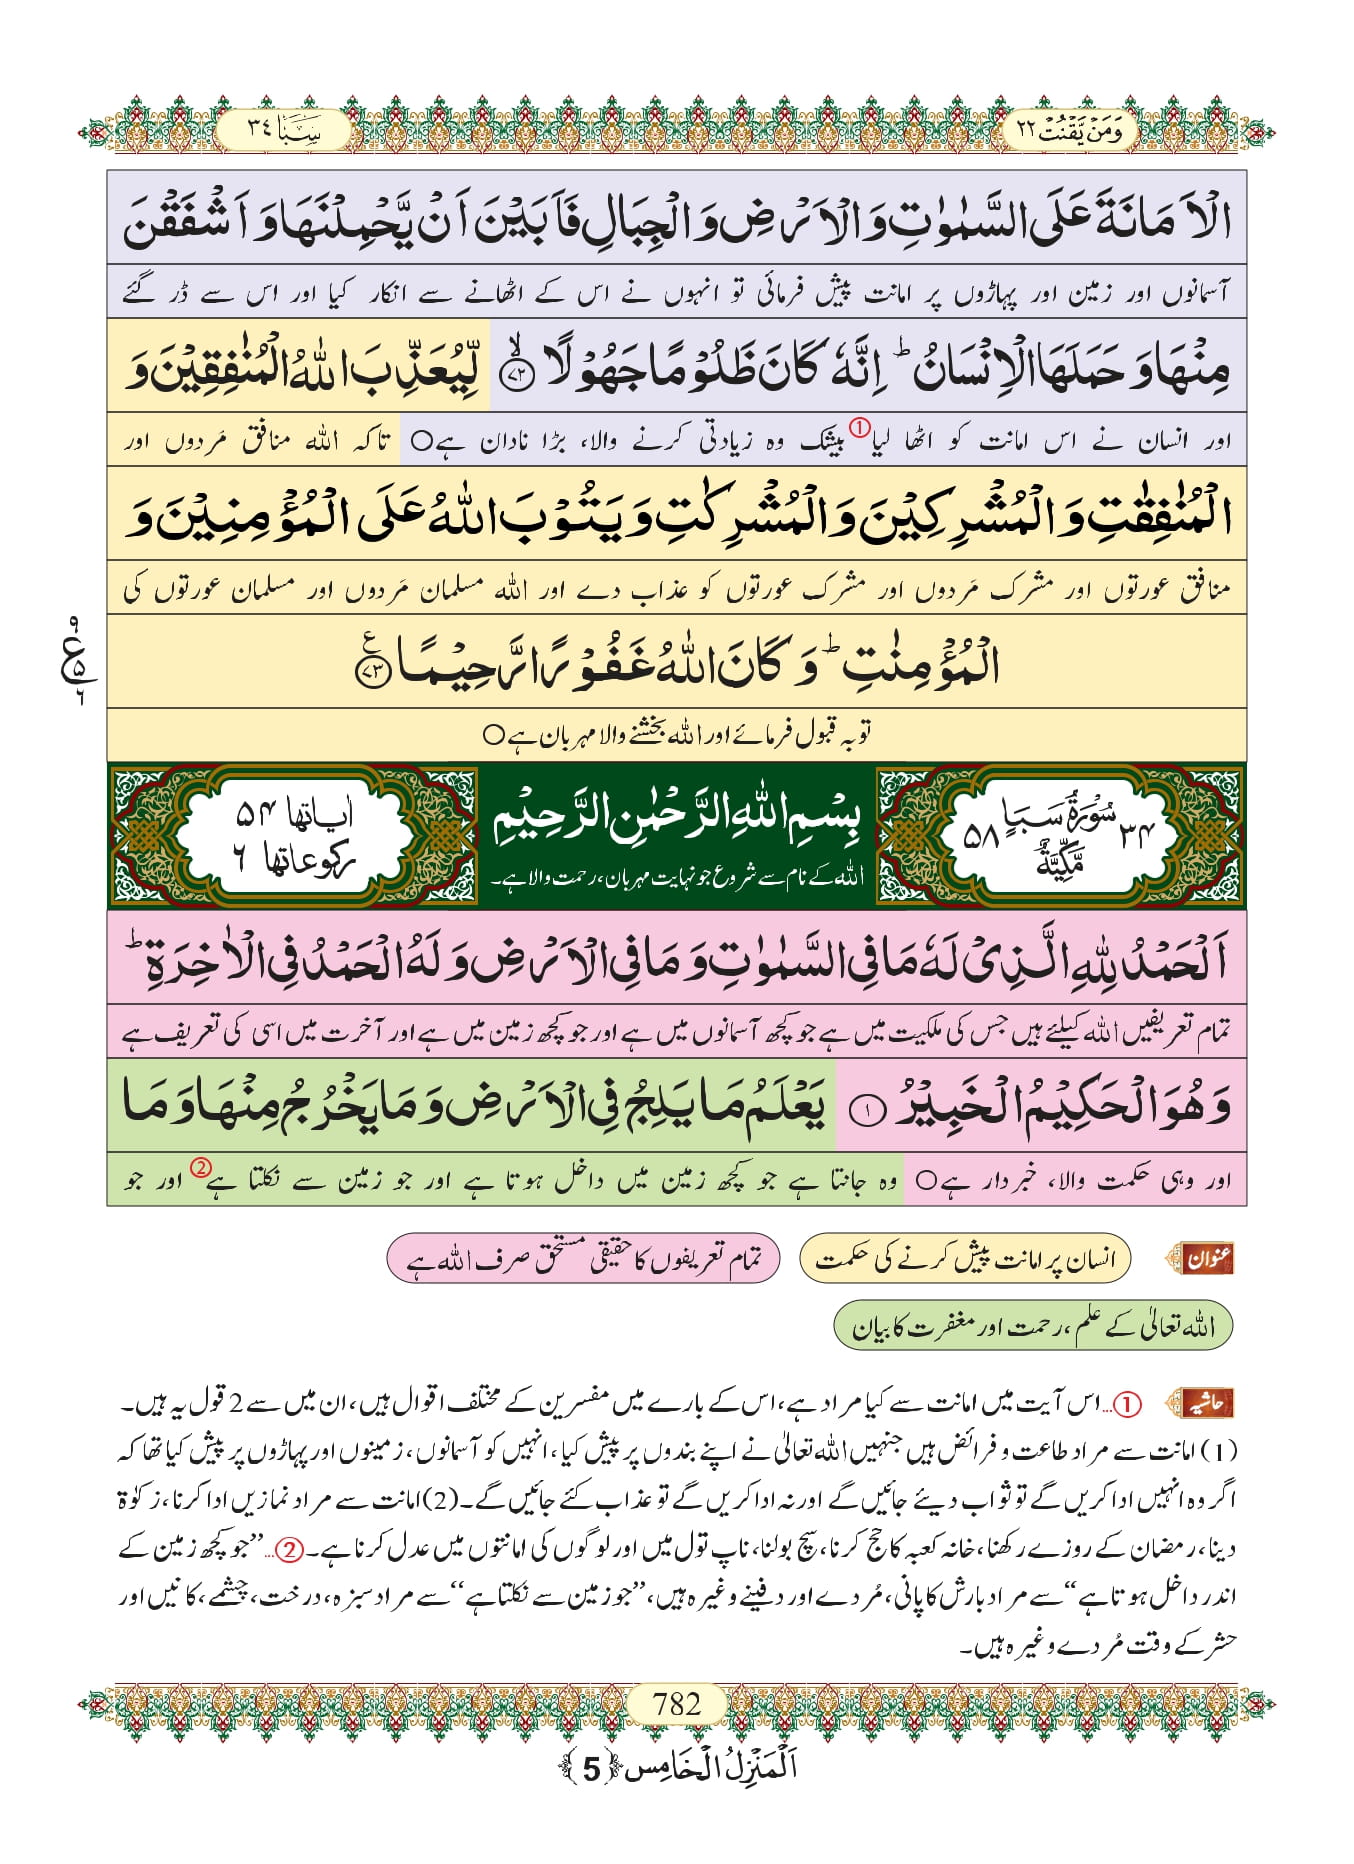 وَمَنْ يَّقْنُتْ ٢٢
سَبَا ٣٤
الْاَمَانَةَ عَلَى السَّمٰوٰتِ وَالْاَرْضِ وَالْجِبَالِ فَاَبَيْنَ اَنْ يَّحْمِلْنَهَا وَاَشْفَقْنَ
آسمانوں اور زمین اور پہاڑوں پر امانت پیش فرمائی تو انہوں نے اس کے اٹھانے سے انکار کیا اور اس سے ڈر گئے
مِنْهَا وَحَمَلَهَا الْاِنْسَانُ ؕ اِنَّهٗ كَانَ ظَلُوْمًا جَهُوْلًا ۙ﴿۷۲﴾ لِّيُعَذِّبَ اللّٰهُ الْمُنٰفِقِيْنَ وَ
اور انسان نے اس امانت کو اٹھا لیا① بیشک وہ زیادتی کرنے والا، بڑا نادان ہے○ تاکہ اللہ منافق مَردوں اور
الْمُنٰفِقٰتِ وَالْمُشْرِكِيْنَ وَالْمُشْرِكٰتِ وَيَتُوْبَ اللّٰهُ عَلَى الْمُؤْمِنِيْنَ وَ
منافق عورتوں اور مشرک مَردوں اور مشرک عورتوں کو عذاب دے اور اللہ مسلمان مَردوں اور مسلمان عورتوں کی
الْمُؤْمِنٰتِ ؕ وَكَانَ اللّٰهُ غَفُوْرًا رَّحِيْمًا ﴿۷۳﴾ ع
۹
ع ۵
۶
توبہ قبول فرمائے اور اللہ بخشنے والا مہربان ہے○
۳۴ سُوْرَةُ سَبَاٍ ۵۸
مَكِّيَّةٌ
بِسْمِ اللّٰهِ الرَّحْمٰنِ الرَّحِيْمِ
اللہ کے نام سے شروع جو نہایت مہربان، رحمت والا ہے۔
اٰیاتها ۵۴
رکوعاتها ۶
اَلْحَمْدُ لِلّٰهِ الَّذِىْ لَهٗ مَا فِى السَّمٰوٰتِ وَمَا فِى الْاَرْضِ وَلَهُ الْحَمْدُ فِى الْاٰخِرَةِ ؕ
تمام تعریفیں اللہ کیلئے ہیں جس کی ملکیت میں ہے جو کچھ آسمانوں میں ہے اور جو کچھ زمین میں ہے اور آخرت میں اسی کی تعریف ہے
وَهُوَ الْحَكِيْمُ الْخَبِيْرُ ﴿۱﴾ يَعْلَمُ مَا يَلِجُ فِى الْاَرْضِ وَمَا يَخْرُجُ مِنْهَا وَمَا
اور وہی حکمت والا، خبردار ہے○ وہ جانتا ہے جو کچھ زمین میں داخل ہوتا ہے اور جو زمین سے نکلتا ہے② اور جو
عنوان
انسان پر امانت پیش کرنے کی حکمت
تمام تعریفوں کا حقیقی مستحق صرف اللہ ہے
اللہ تعالیٰ کے علم، رحمت اور مغفرت کا بیان
حاشیہ
①...اس آیت میں امانت سے کیا مراد ہے، اس کے بارے میں مفسرین کے مختلف اقوال ہیں، ان میں سے 2 قول یہ ہیں۔
(1) امانت سے مراد طاعت و فرائض ہیں جنہیں اللہ تعالیٰ نے اپنے بندوں پر پیش کیا، انہیں کو آسمانوں، زمینوں اور پہاڑوں پر پیش کیا تھا کہ
اگر وہ انہیں ادا کریں گے تو ثواب دیئے جائیں گے اور نہ ادا کریں گے تو عذاب کئے جائیں گے۔ (2) امانت سے مراد نمازیں ادا کرنا، زکوٰۃ
دینا، رمضان کے روزے رکھنا، خانہ کعبہ کا حج کرنا، سچ بولنا، ناپ تول میں اور لوگوں کی امانتوں میں عدل کرنا ہے۔ ②...’’جو کچھ زمین کے
اندر داخل ہوتا ہے‘‘ سے مراد بارش کا پانی، مُردے اور دفینے وغیرہ ہیں، ’’جو زمین سے نکلتا ہے‘‘ سے مراد سبزہ، درخت، چشمے، کانیں اور
حشر کے وقت مُردے وغیرہ ہیں۔
782
اَلْمَنْزِلُ الْخَامِس ﴿5﴾